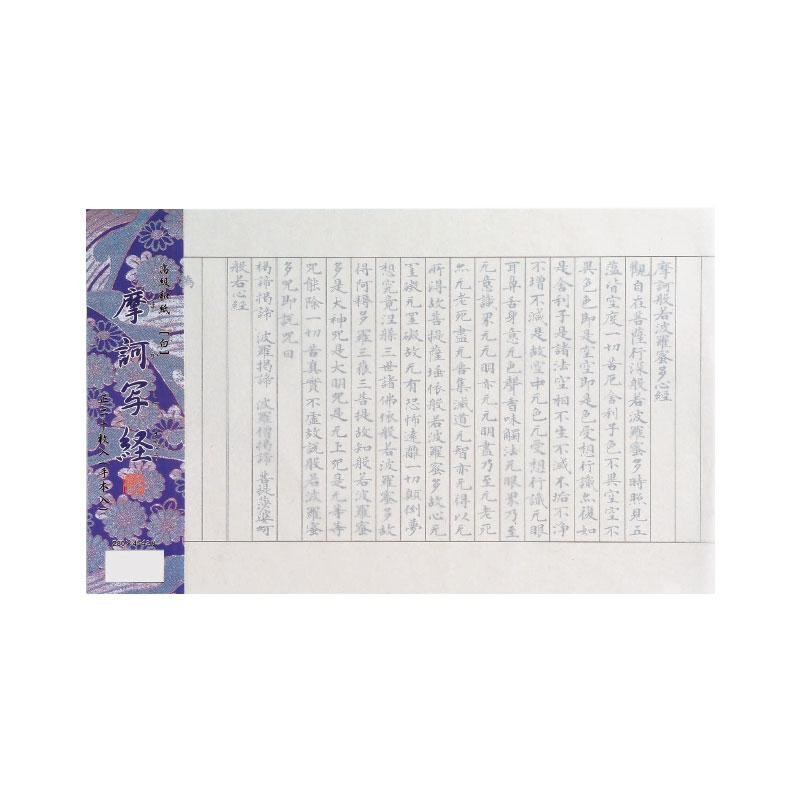 摩訶般若波羅蜜多心経
觀自在菩薩行深般若波羅蜜多時照見五
蘊皆空度一切苦厄舎利子色不異空空不
異色色即是空空即是色受想行識亦復如
是舎利子是諸法空相不生不滅不垢不浄
不増不減是故空中无色无受想行識无眼
耳鼻舌身意无色聲香味觸法无眼界乃至
无意識界无无明亦无无明盡乃至无老死
亦无老死盡无苦集滅道无智亦无得以无
所得故菩提薩埵依般若波羅蜜多故心无
罣礙无罣礙故无有恐怖遠離一切顛倒夢
想究竟涅槃三世諸佛依般若波羅蜜多故
得阿耨多羅三藐三菩提故知般若波羅蜜
多是大神咒是大明咒是无上咒是无等等
咒能除一切苦真實不虚故説般若波羅蜜
多咒即説咒曰
掲諦掲諦 波羅掲諦 波羅僧掲諦 菩提娑婆呵
般若心経
為
高級和紙「白」
摩訶写経